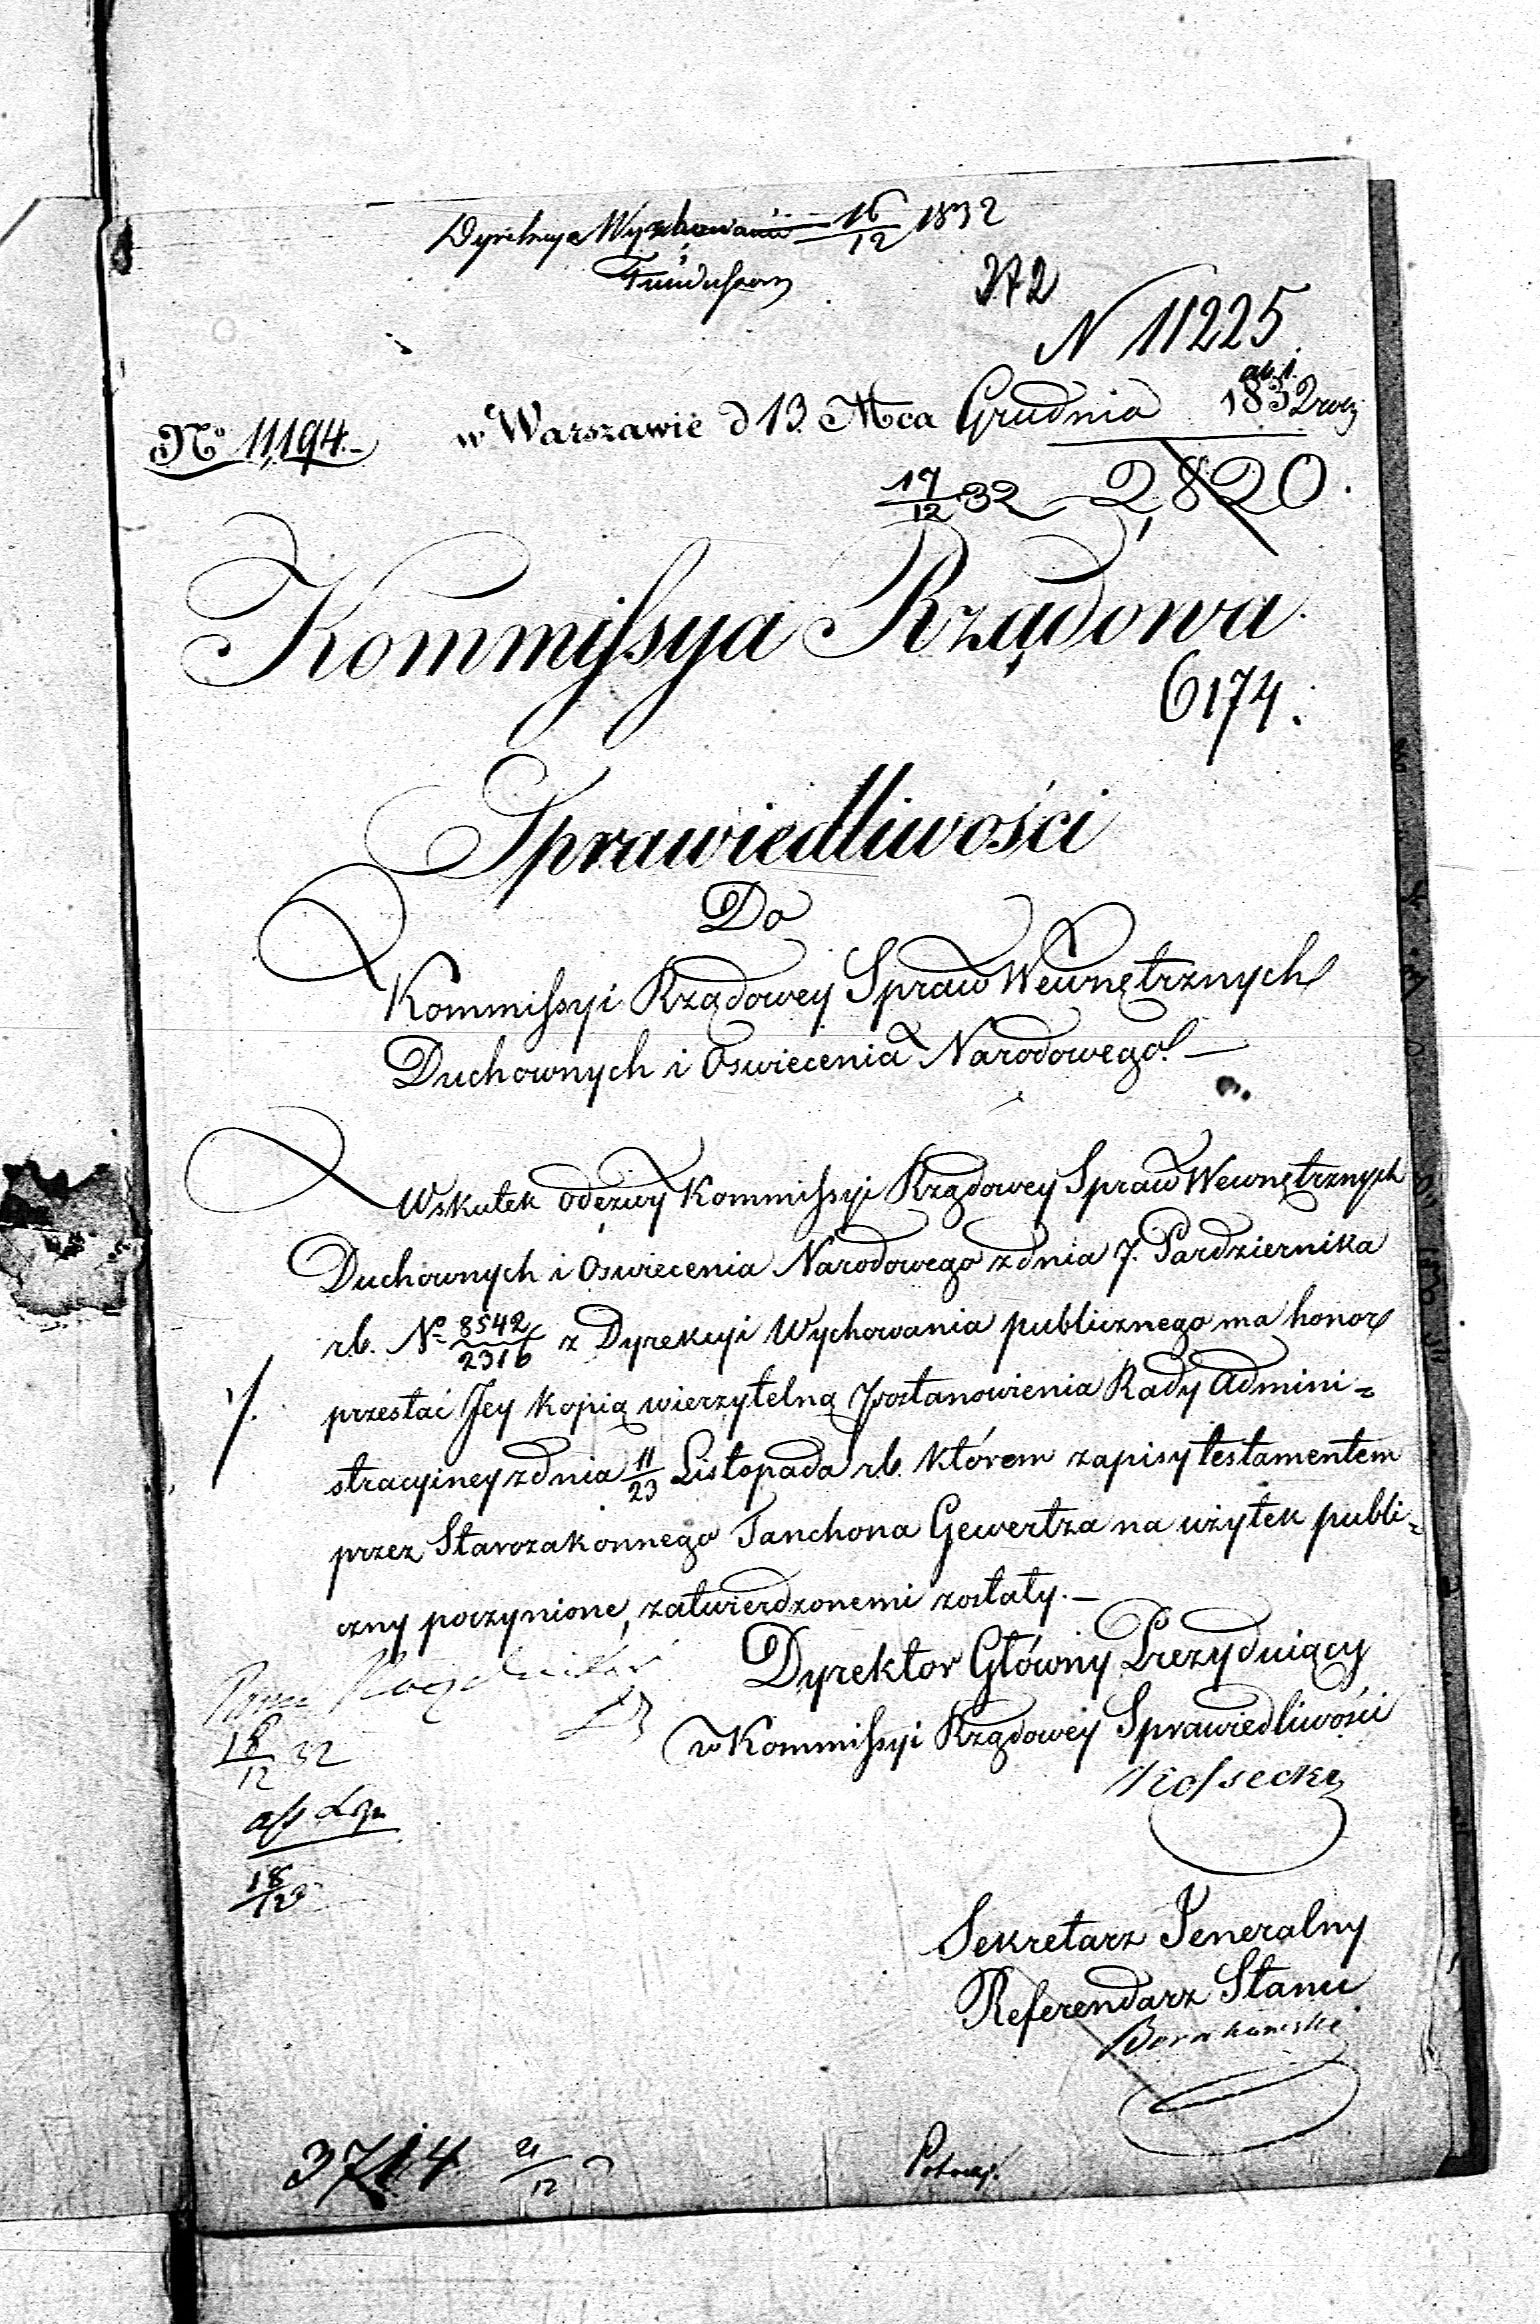 Dyrekcya Wychowania 16/12 1832
Funduszow
372
N 11225
ad. 1.
No 11,194.- w Warszawie d 13. Mca Grudnia 1832 roku
17/12 32 2,820.
Kommissya Rządowa
6174.
Sprawiedliwości
Do
Kommissyi Rządowey Spraw Wewnętrznych
Duchownych i Oswiecenia Narodowego.—
Wskutek odezwy Kommissyi Rządowey Spraw Wewnętrznych
Duchownych i Oswiecenia Narodowego z dnia 7. Pazdziernika
rb. No 8542/2316 z Dyrekcyi Wychowania publicznego ma honor
przesłać Jey kopią wierzytelną Postanowienia Rady Admini=
stracyiney z dnia 11/23 Listopada rb. którem zapisy testamentem
przez Starozakonnego Tanchona Gewertza na użytek publi=
czny poczynione, zatwierdzonemi zostały.—
Dyrektor Główny Prezyduiący
w Kommissyi Rządowey Sprawiedliwości
Kossecki
18/12 32
18/12
Sekretarz Jeneralny
Referendarz Stanu
3714 21/12